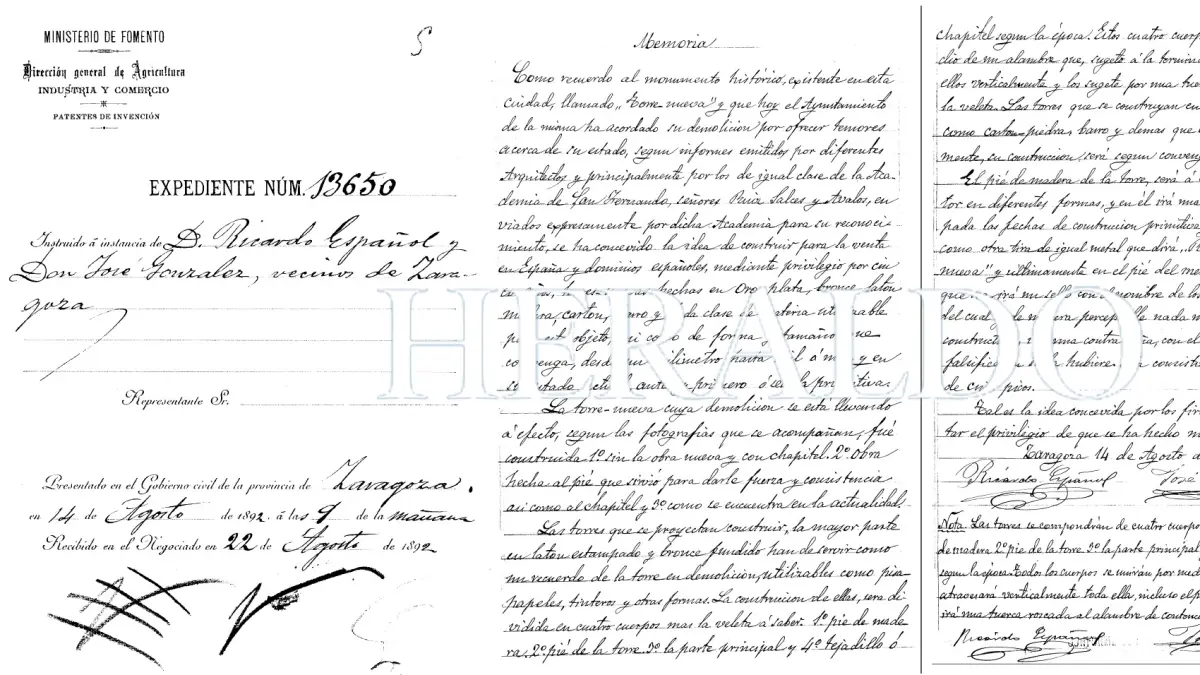 MINISTERIO DE FOMENTO
Dirección general de Agricultura
INDUSTRIA Y COMERCIO
PATENTES DE INVENCIÓN
S
EXPEDIENTE NÚM. 13650
Instruido á instancia de D. Ricardo Español y
Don José Gonzalez, vecinos de Zara-
goza
Representante Sr.
Presentado en el Gobierno civil de la provincia de Zaragoza.
en 14 de Agosto de 1892 á las 9 de la mañana
Recibido en el Negociado en 22 de Agosto de 1892
Memoria
Como recuerdo al monumento histórico, existente en esta
ciudad, llamado "Torre nueva" y que hoy el Ayuntamiento
de la misma ha acordado su demolicion por ofrecer temores
acerca de su estado, segun informes emitidos por diferentes
Arquitectos y principalmente por los de igual clase de la Aca-
demia de San Fernando, señores Ruiz Salces y Avalos, en
viados expresamente por dicha Academia para su reconoci-
miento, se ha concevido la idea de construir para la venta
en España y dominios españoles, mediante privilegio por cin
hechas en Oro plata, bronce laton
madera, carton, barro y toda clase de materia utilizable
objeto, asi como de forma y tamaño que
convenga, desde un milimetro hasta mil ó mas y en
primero ó sea la primitiva.
La torre-nueva cuya demolicion se está llevendo
á efecto, segun las fotografias que se acompañan, fué
construida 1º sin la obra nueva y con chapitel. 2º Obra
hecha al pié que sirvió para darle fuerza y consistencia
asi como al chapitel y 3º como se encuentra en la actualidad.
Las torres que se proyectan construir, la mayor parte
en laton estampado y bronce fundido han de servir como
un recuerdo de la torre en demolicion, utilizables como pisa-
papeles, tinteros y otras formas. La construccion de ellas, sera di
vidida en cuatro cuerpos mas la veleta á saber. 1º pie de made
ra. 2º pié de la torre. 3º la parte principal y 4º tejadillo ó
chapitel segun la época. Estos cuatro cuerp
dio de un alambre que, sugeto á la termin
ellos verticalmente y los sugete por una tue
la veleta. Las torres que se construyan en
como carton-piedra, barro y demas que
mente, su construccion, será segun conveng
El pié de madera de la torre, será á
tor en diferentes formas, y en él irá una
pada las fechas de construcion primitiva
como otra tira de igual metal que dirá,
nueva" y ultimamente en el pié del m
que irá un sello con el nombre de lo
del cual de manera perceptible nada
construct contra con el
falsific hubiere la consist
de cin picos.
Tal es la idea concevida por los fir
tar el privilegio de que se ha hecho m
Zaragoza 14 de Agosto
Ricardo Español José
Nota. Las torres se compondrán de cuatro cuerpo
de madera 2º pie de la torre 3º la parte principal
segun la época. Todos los cuerpos se unirán por med
atravesará verticalmente toda ella, incluso el p
irá una tuerca roscada al alambre de
Ricardo Español
HERALDO